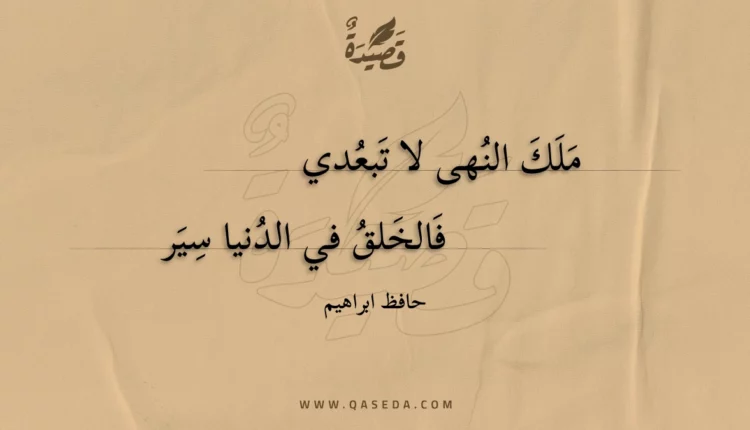 قَصِيدَةٌ
مَلَكَ النُهى لا تَبعُدي
فَالخَلقُ في الدُنيا سِيَر
حافظ ابراهيم
WWW.QASEDA.COM